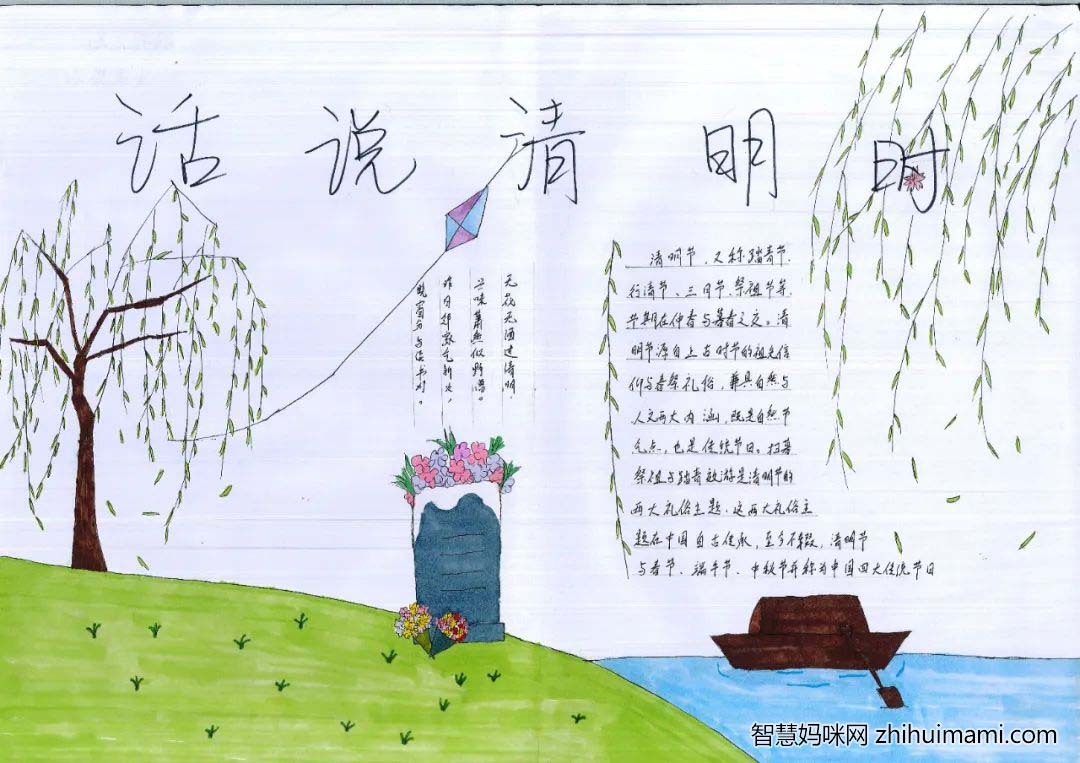 话说清明时
无花无酒过清明，
兴味萧然似野僧。
昨日邻家乞新火，
晓窗分与读书灯。
清明节，又称踏青节、
行清节、三月节、祭祖节等，
节期在仲春与暮春之交。清
明节源自上古时节的祖先信
仰与春祭礼俗，兼具自然与
人文两大内涵，既是自然节
气点，也是传统节日。扫墓
祭祖与踏青郊游是清明节的
两大礼俗主题，这两大礼俗主
题在中国自古传承，至今不辍，清明节
与春节、端午节、中秋节并称为中国四大传统节日
智慧妈咪网 zhihuimami.com